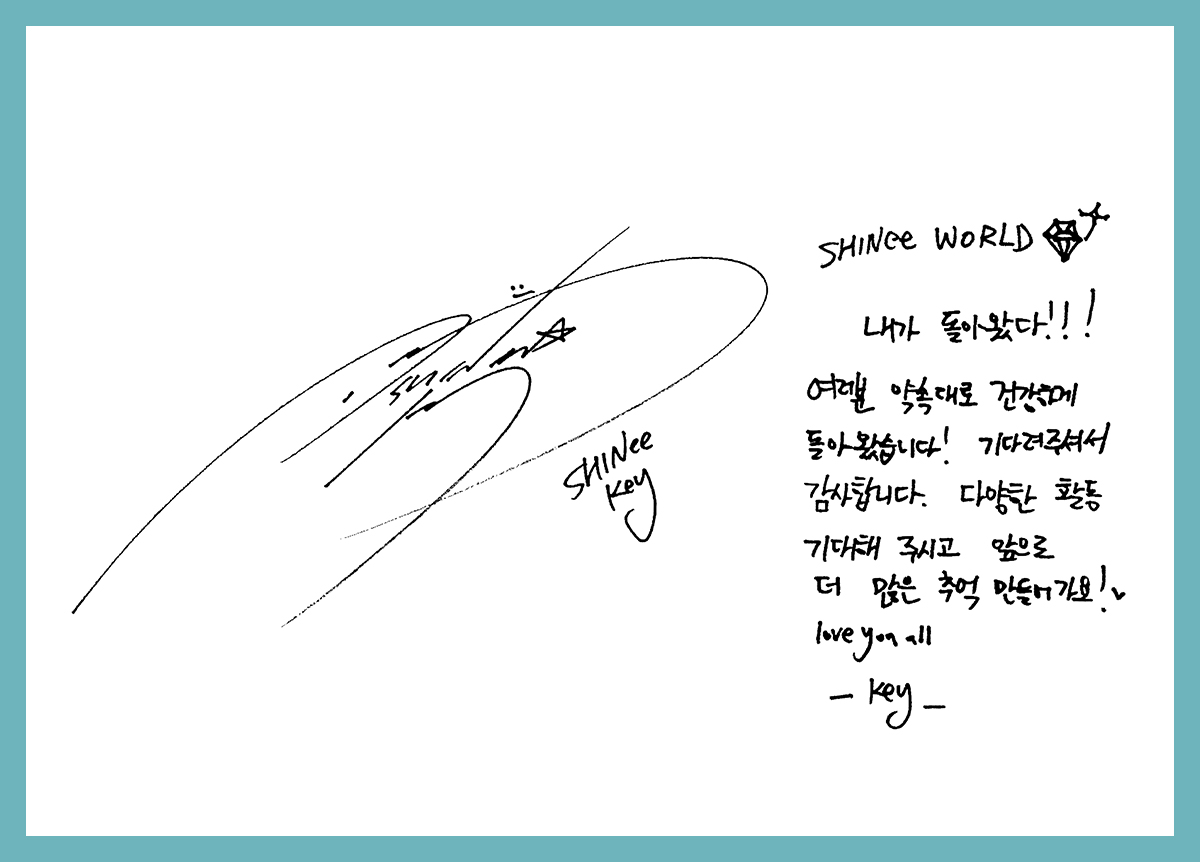 SHINee
Key
SHINee WORLD
내가 돌아왔다!!!
여러분 약속대로 건강하게
돌아왔습니다! 기다려주셔서
감사합니다. 다양한 활동
기대해 주시고 앞으로
더 많은 추억 만들어가요!
love you all
– Key –